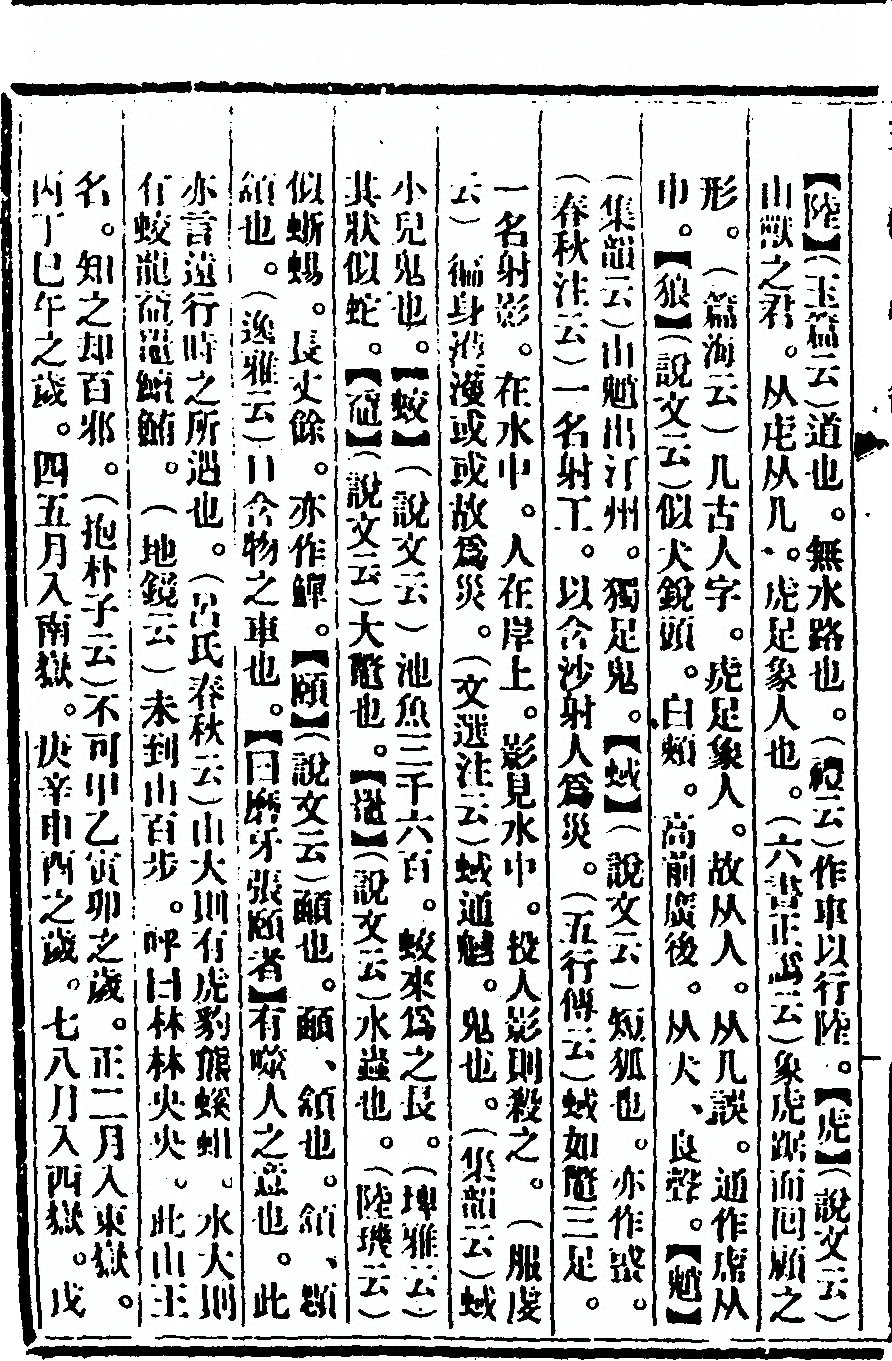 【陸】(玉篇云)道也。無水路也。(禮云)作車以行陸。【虎】(說文云)
山獸之君。从虍从儿。虎足象人也。(六書正譌云)象虎踞而回顧之
形。(篇海云)几古人字。虎足象人。故从人。从几誤。通作虝从
巾。【狼】(說文云)似犬銳頭。白頰。高前廣後。从犬、良聲。【魈】
(集韻云)山魈出汀州。獨足鬼。【蜮】(說文云)短狐也。亦作𧌒。
(春秋注云)一名射工。以含沙射人爲災。(五行傳云)蜮如鼈三足。
一名射影。在水中。人在岸上。影見水中。投人影則殺之。(服虔
云)徧身濩濩或或故爲災。(文選注云)蜮通魊。鬼也。(集韻云)蜮
小兒鬼也。【蛟】(說文云)池魚三千六百。蛟來爲之長。(埤雅云)
其狀似蛇。【黿】(說文云)大鼈也。【鼉】(說文云)水蟲也。(陸璣云)
似蜥蜴。長丈餘。亦作鱓。【頤】(說文云)顄也。顄、頷也。頷、頤
頷也。(逸雅云)口含物之車也。【曰磨牙張頤者】有噬人之意也。此
亦言遠行時之所遇也。(呂氏春秋云)山大則有虎豹熊螇蛆。水大則
有蛟龍黿鼉鱣鮪。(地鏡云)未到山百步。呼曰林林央央。此山王
名。知之却百邪。(抱朴子云)不可甲乙寅卯之歲。正二月入東嶽。
丙丁巳午之歲。四五月入南嶽。庚辛申酉之歲。七八月入西嶽。戊